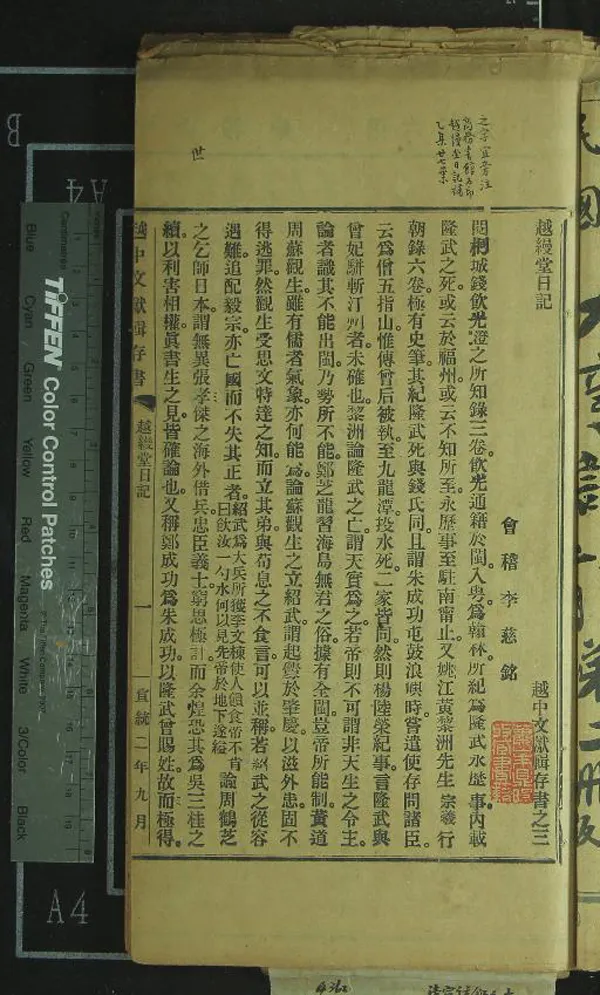 越縵堂日記
越中文獻輯存書之三
會稽李慈銘
閱桐城錢飲光澄之所知錄三卷。飲光通籍於閩。入粵爲翰林。所紀爲隆武永歷事。內載
隆武之死。或云於福州。或云不知所至。永歷事至駐南甯止。又姚江黃黎洲先生宗羲行
朝錄六卷。極有史筆。其紀隆武死與錢氏同。且謂朱成功屯鼓浪嶼時。嘗遣使存問諸臣。
云爲僧五指山。惟傳曾后被執。至九龍潭。投水死。二家皆同。然則楊陸榮紀事言隆武與
曾妃駢斬汀州者。未確也。黎洲論隆武之亡。謂天實爲之。若帝則不可謂非天生之令主。
論者譏其不能出閩。乃勢所不能。鄭芝龍習海島無君之俗。據有全閩。豈帝所能制。黃道
周蘇觀生。雖有儒者氣象。亦何能爲。論蘇觀生之立紹武。謂起釁於肇慶。以滋外患。固不
得逃罪。然觀生受思文特達之知。而立其弟。與荀息之不食言。可以並稱。若紹武之從容
遇難。追配毅宗。亦亡國而不失其正者。紹武爲大兵所獲李文棟使人饋食帝不肯曰飲汝一勺水何以見先帝於地下遂縊論周鶴芝
之乞師日本。謂無異張孝傑之海外借兵。忠臣義士。窮思極計。而余煌恐其爲吳三桂之
續。以利害相權。眞書生之見。皆確論也。又稱鄭成功爲朱成功。以隆武曾賜姓。故而極得。
越中文獻輯存書
越縵堂日記
一
宣統二年九月
世
越縵堂日記補
TIFFEN Color Control Patches
© The Tiffen Company, 2007
Centimetres
Blue
Cyan
Green
Yellow
Red
Magenta
White
3/Color
Black
A4
B
A4
民國